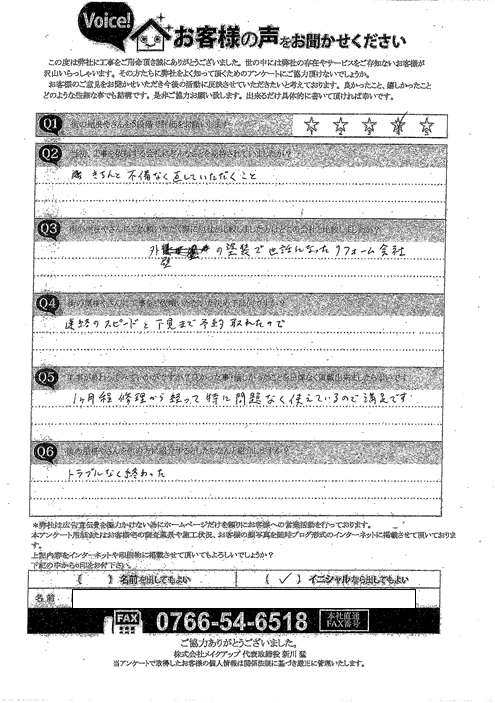 Voice!
お客様の声をお聞かせください
この度は弊社に工事をご用命頂き誠にありがとうございました。世の中には弊社の存在やサービスをご存ないお客様が
沢山いらっしゃいます。その方たちに弊社をよく知って頂くためのアンケートにご協力頂けないでしょうか。
お客様のご意見をお聞かせいただき今後の活動に反映させていただきたいと考えております。良かったこと、嬉しかったこと
どのような些細な事でも結構です。是非ご協力お願い致します。出来るだけ具体的に書いて頂ければ幸いです。
Q1 街の屋根やさんを5段階で評価をお願いします
1 2 3 4 5
Q2 当初、工事を依頼する会社にどんなことを期待されていましたか？
きちんと不備なく直していただくこと
Q3
の塗装で世話になったリフォーム会社
Q4
連絡のスピードと下見まで予約取れたので
Q5
1ヶ月程修理から経って特に問題なく使えているので満足です
Q6
トラブルなく終わった
＊弊社は広告宣伝費を極力かけない為にホームページだけを頼りにお客様への営業活動を行っております。
本アンケート用紙またはお客様宅の調査風景や施工状況、お客様の顔写真を随時ブログ形式のインターネットに掲載させて頂いております。
上記内容をインターネットや印刷物に掲載させて頂いてもよろしいでしょうか？
下記の中から○印をお付け下さい。
（　）名前を出してもよい （✓）イニシャルなら出してもよい
名前
FAX 0766-54-6518 本社直通 FAX番号
ご協力ありがとうございました。
株式会社メイクアップ 代表取締役 新川 猛
当アンケートで取得したお客様の個人情報は関係法規に基づき厳正に管理いたします。